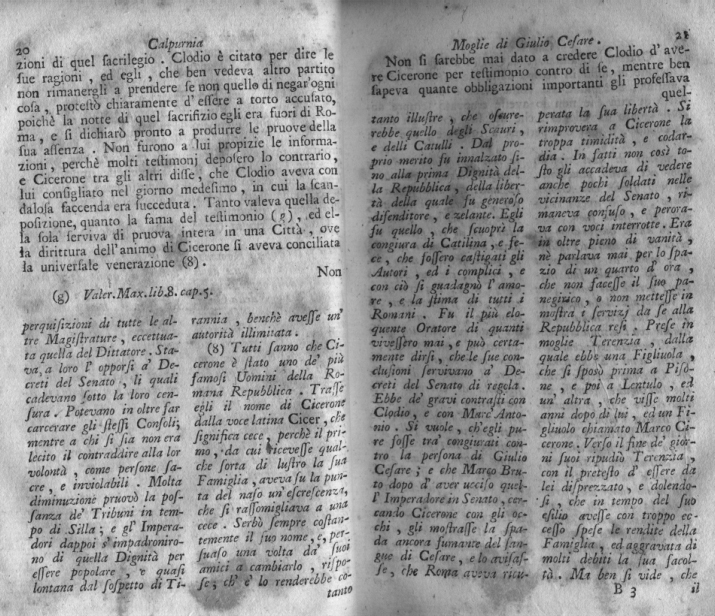 20 Calpurnia
zioni di quel sacrilegio . Clodio è citato per dire le
sue ragioni , ed egli , che ben vedeva altro partito
non rimanergli a prendere se non quello di negar'ogni
cosa , protestò chiaramente d'essere a torto accusato,
poichè la notte di quel sacrifizio egli era fuori di Ro-
ma , e si dichiarò pronto a produrre le pruove della
sua assenza . Non furono a lui propizie le informa-
zioni , perchè molti testimonj deposero lo contrario,
e Cicerone tra gli altri disse , che Clodio aveva con
lui consigliato nel giorno medesimo , in cui la scan-
dalosa faccenda era succeduta . Tanto valeva quella de-
posizione, quanto la fama del testimonio (g) , ed el-
la sola serviva di pruova intera in una Città , ove
la dirittura dell'animo di Cicerone si aveva conciliata
la universale venerazione (8) .
Non
(g) Valer. Max. lib.8. cap.5.
perquisizioni di tutte le al-
tre Magistrature , eccettua-
ta quella del Dittatore . Sta-
va , a loro l' opporsi a' De-
creti del Senato , li quali
cadevano sotto la loro cen-
sura . Potevano in oltre far
carcerare gli stessi Consoli;
mentre a chi si sia non era
lecito il contraddire alla lor
volontà , come persone sa-
cre , e inviolabili . Molta
diminuzione pruovò la pos-
sanza de' Tribuni in tem-
po di Silla ; e gl' Impera-
dori dappoi s'impadroniro-
no di quella Dignità per
essere popolare , e quasi
lontana dal sospetto di Ti-
rannia , benchè avesse un'
autorità illimitata .
(8) Tutti sanno che Ci-
cerone è stato uno de' più
famosi Uomini della Ro-
mana Repubblica . Trasse
egli il nome di Cicerone
dalla voce latina Cicer , che
significa cece , perchè il pri-
mo , da cui ricevesse qual-
che sorta di lustro la sua
Famiglia , aveva su la pun-
ta del naso un'escrescenza,
che si rassomigliava a una
cece . Serbò sempre costan-
temente il suo nome , e, per-
suaso una volta da' suoi
amici a cambiarlo , rispo-
se , ch' è lo renderebbe co-
tanto
Moglie di Giulio Cesare . 21
Non si sarebbe mai dato a credere Clodio d' ave-
re Cicerone per testimonio contro di se , mentre ben
sapeva quante obbligazioni importanti gli professava
quel-
tanto illustre , che oscure-
rebbe quello degli Scauri ,
e delli Catulli . Dal pro-
prio merito fu innalzato si-
no alla prima Dignità del-
la Repubblica , della liber-
tà della quale fu generoso
difenditore , e zelante. Egli
fu quello , che scuoprì la
congiura di Catilina , e fe-
ce , che fossero castigati gli
Autori , ed i complici , e
con ciò si guadagnò l'amo-
re , e la stima di tutti i
Romani . Fu il più elo-
quente Oratore di quanti
vivessero mai , e può certa-
mente dirsi , che le sue con-
clusioni servivano a' De-
creti del Senato di regola .
Ebbe de' gravi contrasti con
Clodio , e con Marc' Anto-
nio . Si vuole , ch'egli pu-
re fosse tra' congiurati con-
tro la persona di Giulio
Cesare ; e che Marco Bru-
to dopo d' aver ucciso quel-
l' Imperadore in Senato, cer-
cando Cicerone con gli oc-
chi , gli mostrasse la spa-
da ancora fumante del san-
gue di Cesare , e lo avisas-
se , che Roma aveva ricu-
perata la sua libertà . Si
rimprovera a Cicerone la
troppa timidità , e codar-
dia . In fatti non così to-
sto gli accadeva di vedere
anche pochi soldati nelle
vicinanze del Senato , ri-
maneva confuso , e perora-
va con voci interrotte . Era
in oltre pieno di vanità ,
nè parlava mai per lo spa-
zio di un quarto d' ora ,
che non facesse il suo pa-
negirico , o non mettesse in
mostra i servizj da se alla
Repubblica resi . Prese in
moglie Terenzia , dalla
quale ebbe una Figliuola ,
che si sposò prima a Piso-
ne , e poi a Lentulo , ed
un' altra , che visse molti
anni dopo di lui , ed un Fi-
gliuolo chiamato Marco Ci-
cerone . Verso il fine de' gior-
ni suoi ripudiò Terenzia ,
con il pretesto d' essere da
lei disprezzato , e dolendo-
si , che in tempo del suo
esilio avesse con troppo ec-
cesso spese le rendite della
Famiglia , ed aggravata di
molti debiti la sua facol-
tà . Ma ben si vide , che
B 3 il